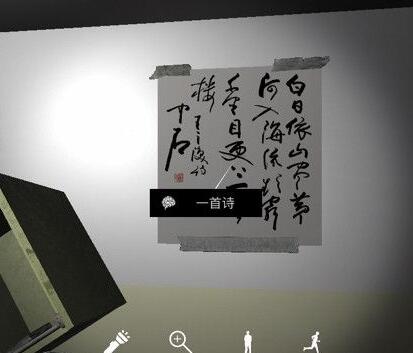 白日依山尽黄
河入海流欲窮
千里目更上一
楼 王之涣诗
中石
一首诗